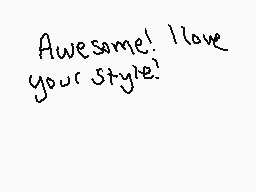 Awesome! I love
your style!